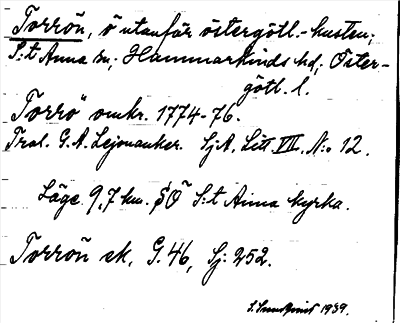 Torrön, ö utanför östergötl.-kusten;
S:t Anna sn; Hammarkinds hd; Öster-
götl. l.
"Torrö" omkr. 1774-76.
Tral. G. A. Lejonanker. SjA, Litt VII, N:o 12.
Läge 9,7 km. SO S:t Anna kyrka.
Torrön ek, G. 46, Sj: 252.
S. Sundqvist 1939.